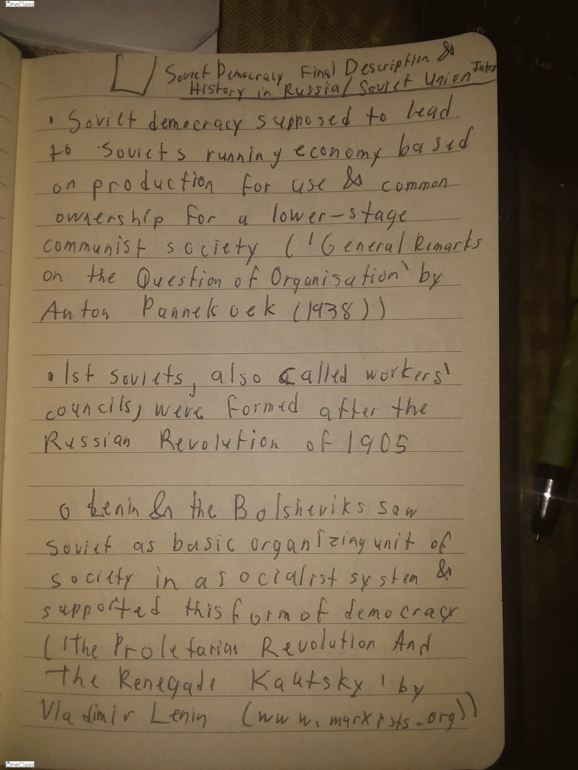 OneClass
Soviet Democracy Final Description &
History in Russia/Soviet Union Intro
• Soviet democracy supposed to lead
to Soviets running economy based
on production for use & common
ownership for a lower-stage
communist society ('General Remarks
on the Question of Organisation' by
Anton Pannekoek (1938))
• 1st soviets, also called workers'
councils, were formed after the
Russian Revolution of 1905
o Lenin & the Bolsheviks saw
soviet as basic organizing unit of
society in a socialist system &
supported this form of democracy
('The Proletarian Revolution And
the Renegade Kautsky' by
Vladimir Lenin (www.marxists.org))
OneClass